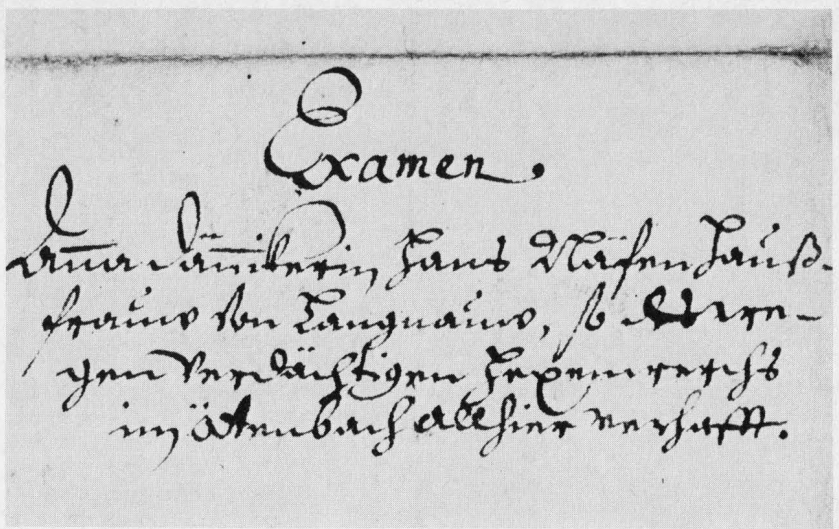 Examen.
Anna Däniikerin Hans Näfen Hauß-
frauw von Langnauw, so we-
gen verdächtigen Hexenwerchs
im Ötenbach allhier verhafft.